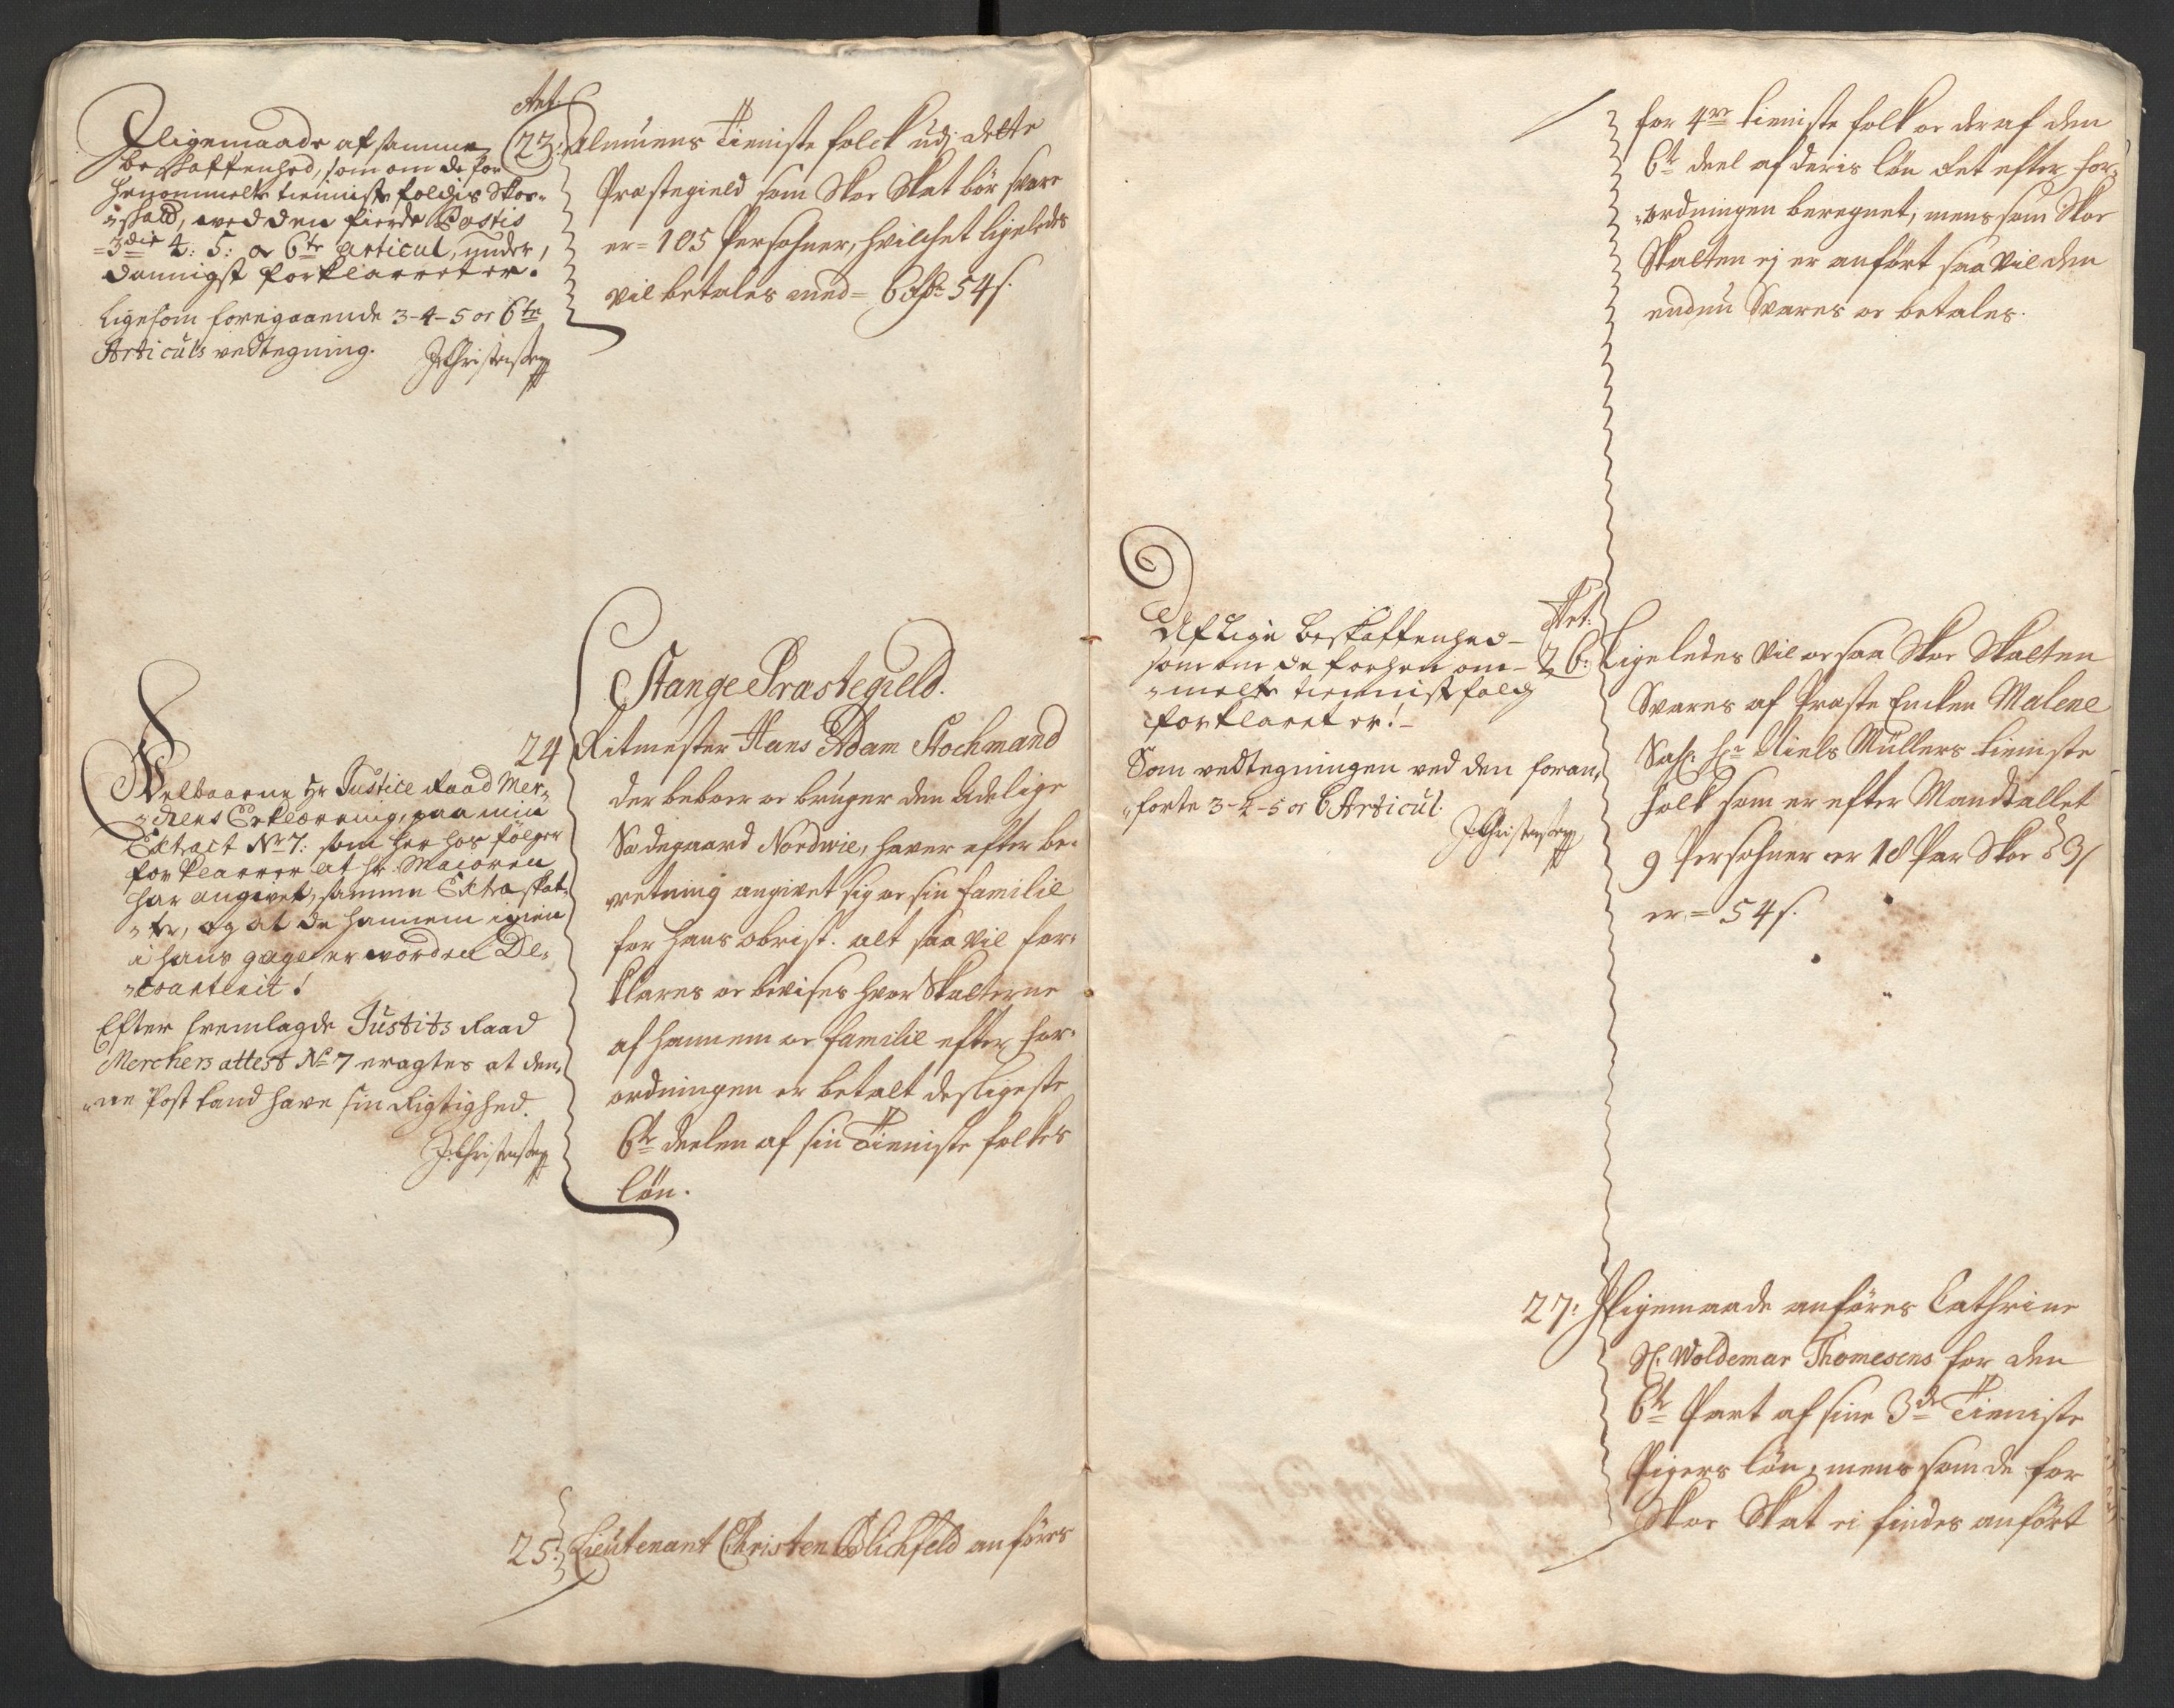 Iligemaade af samme
beskaffenhed, som om de for
henommelte tienniste folchis Skoe-
shold, wed den fierde Postis
3die 4: 5: og 6te articul, under,
dannigst forklarret er.
Ligesom foregaaende 3-4-5 og 6te
Articuls vedtegning.
JChristensen
Ant:
23: Almuens Tieniste folck udj dette
Præstegield som Skoe Skat bör svare
er = 105 Persohner, hvilchet ligeledes
vil betales med = 6 Rdr 54 s.
Stange Præstegield.
24 Ritmester Hans Adam Stochmand
der beboer og bruger den Adelige
Sædegaard Nordwie, haver efter be-
retning angivet sig og sin familie
for hans obrist. alt saa vil for-
klares og bevises hvor Skatterne
af hannem og familie efter for-
ordningen er betalt desligeste
6te deelen af sin Tieniste folkes
lön.
Welbaarne Hr Justice Raad Mer-
kers Erklærring, paa min
Extract No 7: som her hos fölger
forklarrer at Hr. Maioren
har angivet, samme Extra skat-
ter, og at de hannem igien
i hans gage er worden De-
courterit!
Efter fremlagde Justits Raad
Merchers attest No 7 eragtes at den-
ne Post kand have sin Rigtighed.
JChristensen
25: Lieutenant Christen Blichfeld anföres
for 4re tieniste folk og deraf den
6te deel af deris lön det efter for-
ordningen beregnet, mens som Skoe
Skatten ej er anfört saa vil den
endnu Svares og betales.
Af lige beskaffenhed
som om de forhen om-
melte tienniste folch
forklaret er!
Som vedtegningen ved den foran-
förte 3-4-5 og 6 Articul.
JChristensen
Ant:
26: Ligeledes vil og saa Skoe Skatten
Svares af Præste Encken Malene
Sahl: Hr Niels Müllers tieniste
folk som er efter Mandtallet
9 Persohner er 18 Par Skoe à 3 s
er = 54 s.
27: Iligemaade anföres Cathrine
Sl. Woldemar Thomesens for den
6te Part af sine 3de Tieniste
Pigers lön, mens som de for
Skoe Skat ei findes anfört